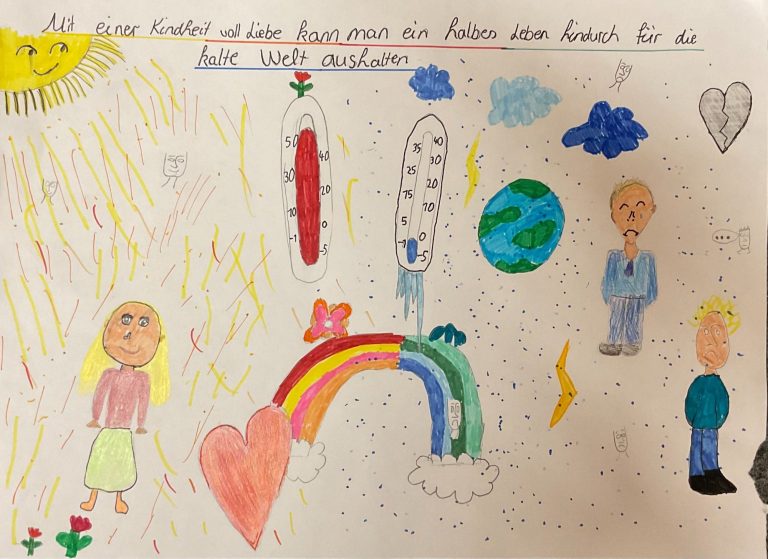 Mit einer Kindheit voll Liebe kann man ein halbes Leben hindurch für die
kalte Welt aushalten
50
40
30
20
10
0
-1
-5
40
35
30
25
20
15
10
5
0
-1
-5
...